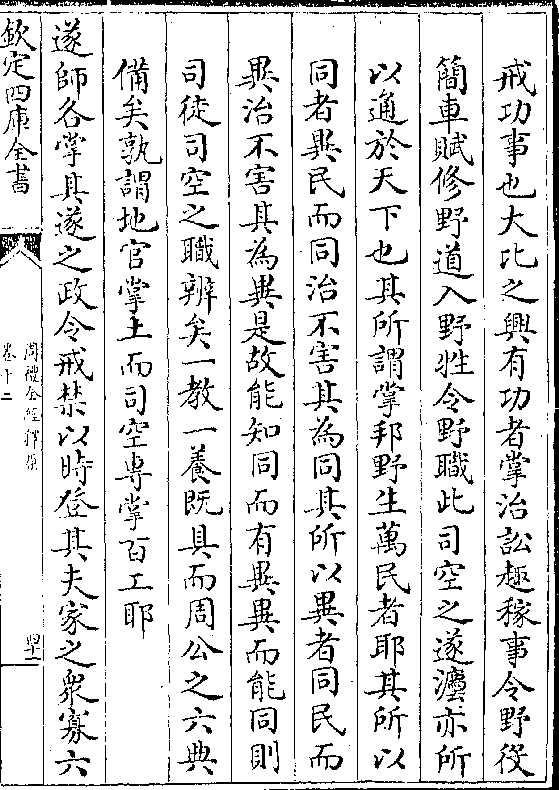 戒功事也大比之興有功者掌治訟趣稼事令野役
簡車賦修野道入野牲令野職此司空之遂灋亦所
以通於天下也其所謂掌邦野生萬民者耶其所以
同者異民而同治不害其為同其所以異者同民而
異治不害其為異是故能知同而有異異而能同則
司徒司空之職辨矣一教一養既具而周公之六典
備矣孰謂地官掌土而司空専掌百工耶
遂師各掌其遂之政令戒禁以時登其夫家之衆寡六
欽定四庫全書
周禮全經釋原
卷十二